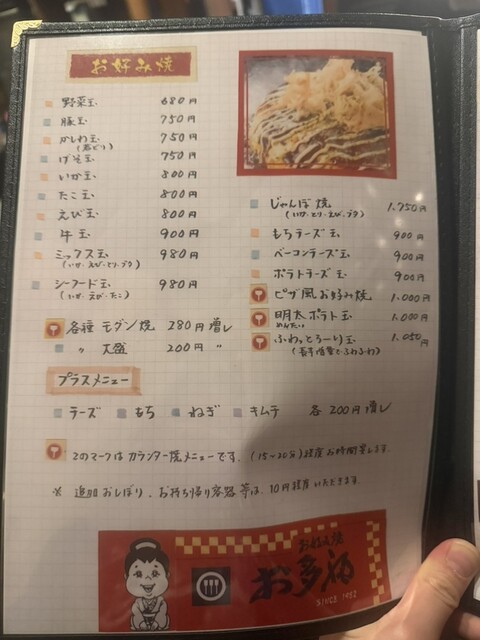 お好み焼
野菜玉 680円
豚玉 750円
かしわ玉 750円
(若どり)
げそ玉 750円
いか玉 800円
たこ玉 800円
えび玉 800円
牛玉 900円
ミックス玉 980円
(いか・えび・とり・ブタ)
シーフード玉 980円
(いか・えび・たこ)
各種 モダン焼 280円増し
〃 大盛 200円 〃
じゃんぼ焼 1,750円
(いか・とり・えび・ブタ)
もちチーズ玉 900円
ベーコンチーズ玉 900円
ポテトチーズ玉 900円
ピザ風お好み焼 1,000円
明太ポテト玉 1,000円
めんたい
ふわっとろ〜り玉 1,050円
プラスメニュー
チーズ もち ねぎ キムチ 各200円増し
このマークはカウンター焼メニューです。(15〜20分)程度お時間苦します。
※ 追加おしぼり、お持ち帰り容器等は、10円程度いただきます。
お好み焼
お多福
SINCE 1952